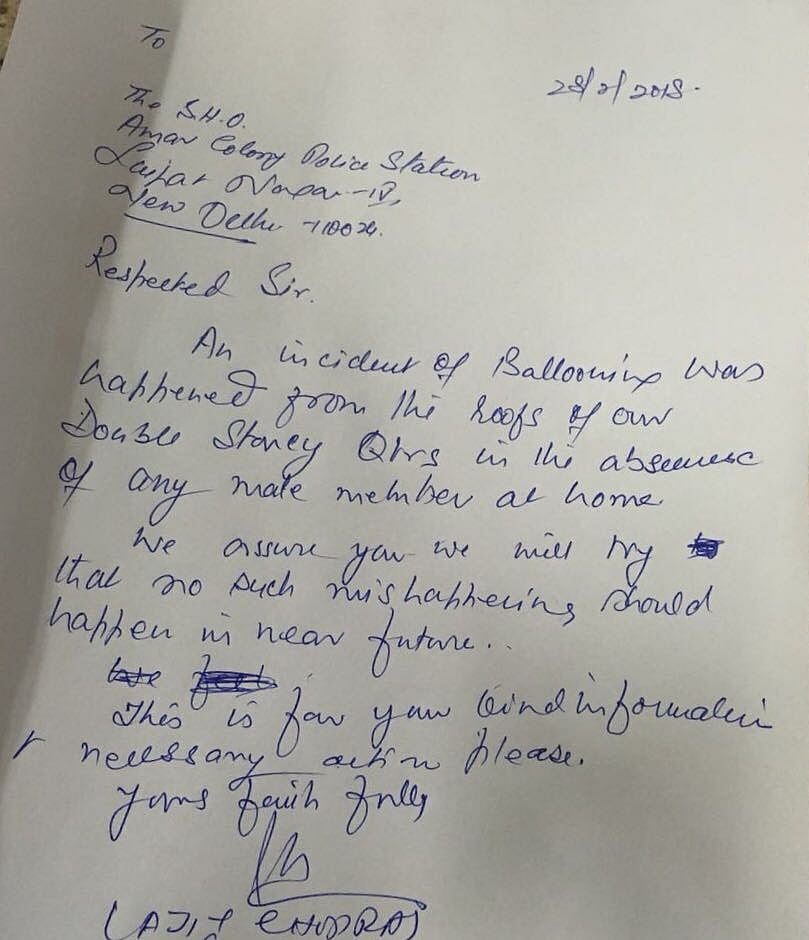 To
28/2/2018.
The S.H.O.
Amar Colony Police Station
Lajpat Nagar-IV,
New Delhi-110024.
Respected Sir.
An incident of Ballooning was
happened from the roofs of our
Double Storey Qtrs in the absence
of any male member at home
We assure you we will try
that no such mishappening should
happen in near future..
We
This is for your kind information
+ necessary action please.
Yours faithfully
(AJIT CHOPRA)